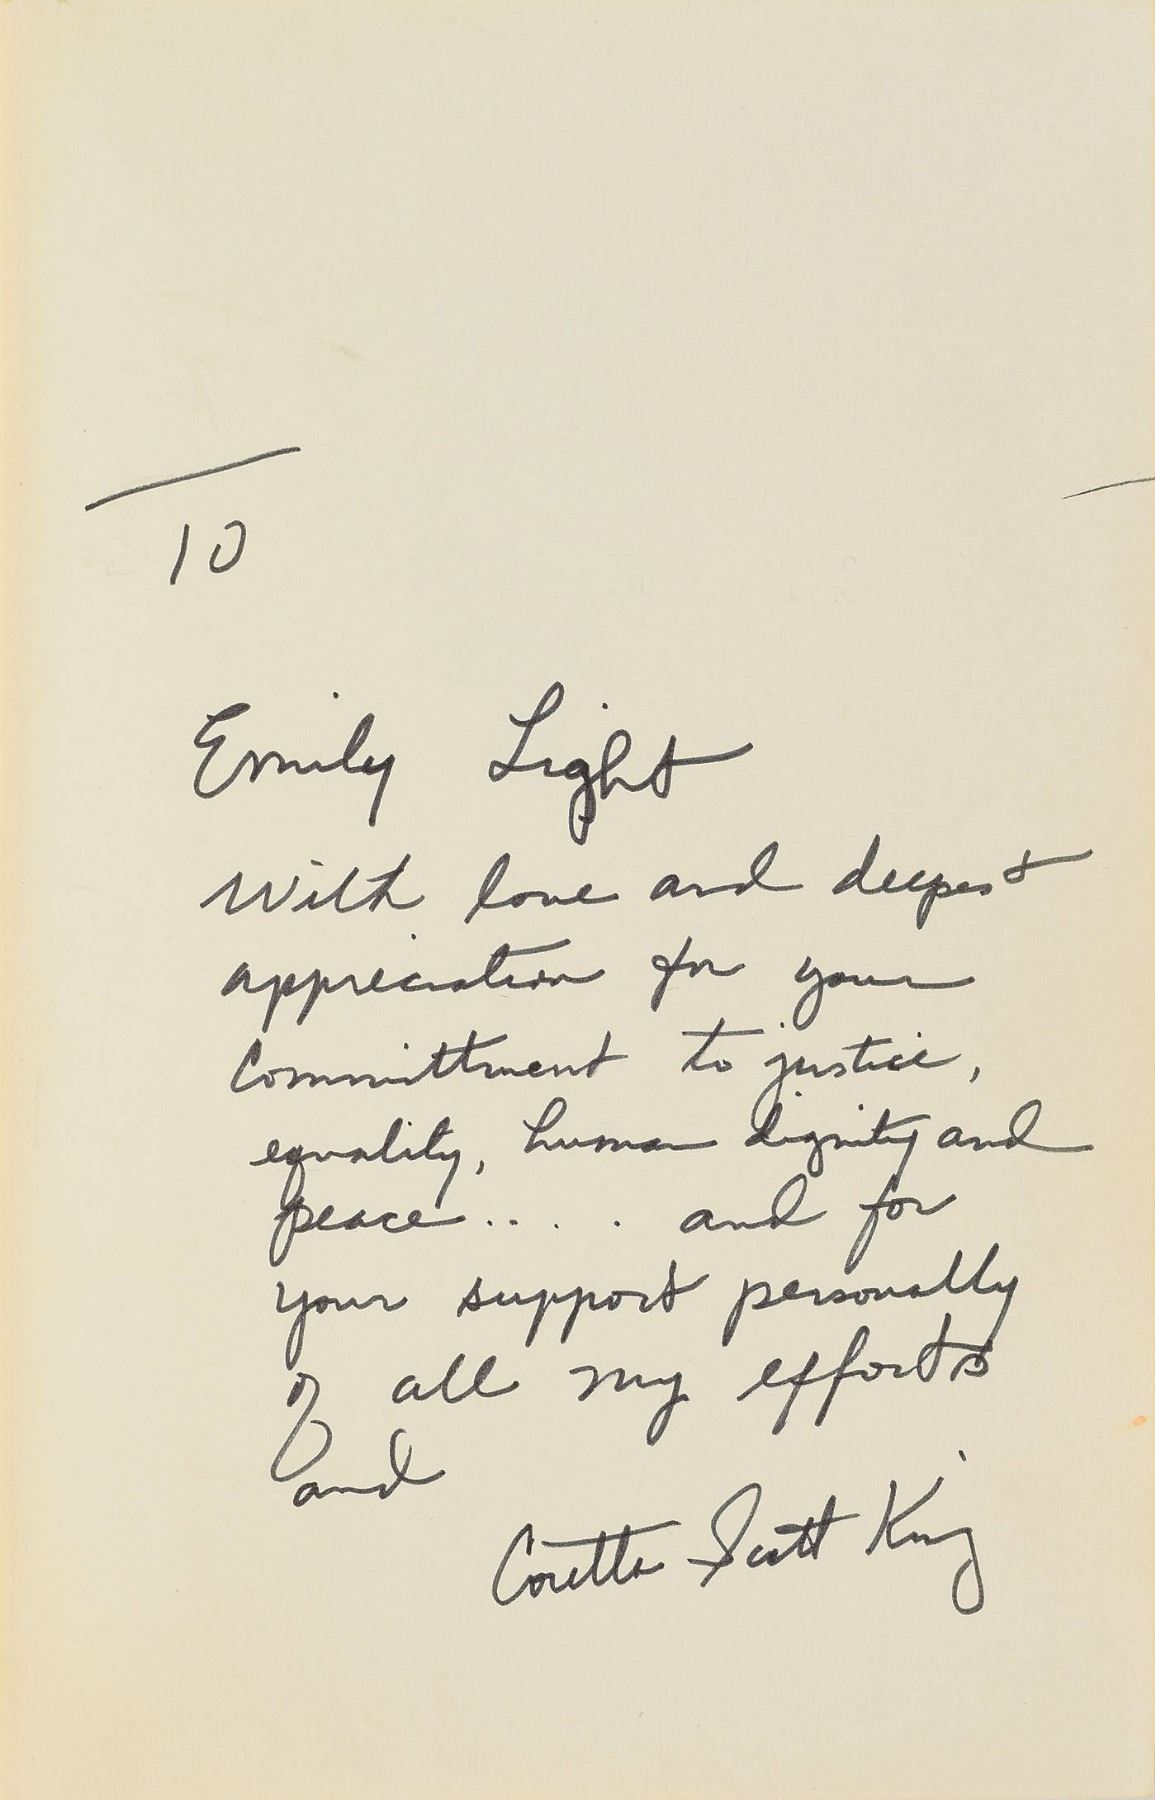 To
Emily Light
With love and deepest
appreciation for your
Committment to justice,
equality, human dignity and
peace..... and for
your support personally
of all my efforts
and
Coretta Scott King